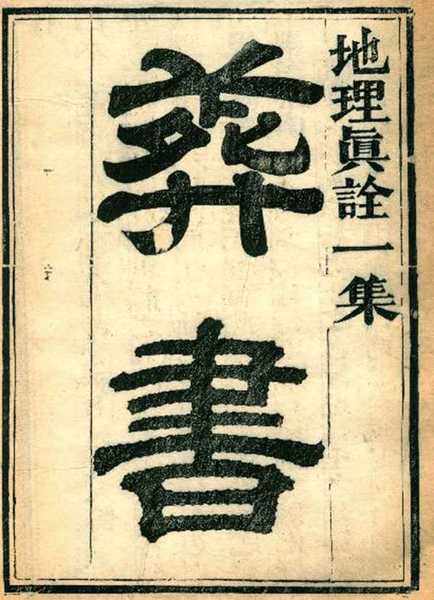 地理眞詮一集
葬書